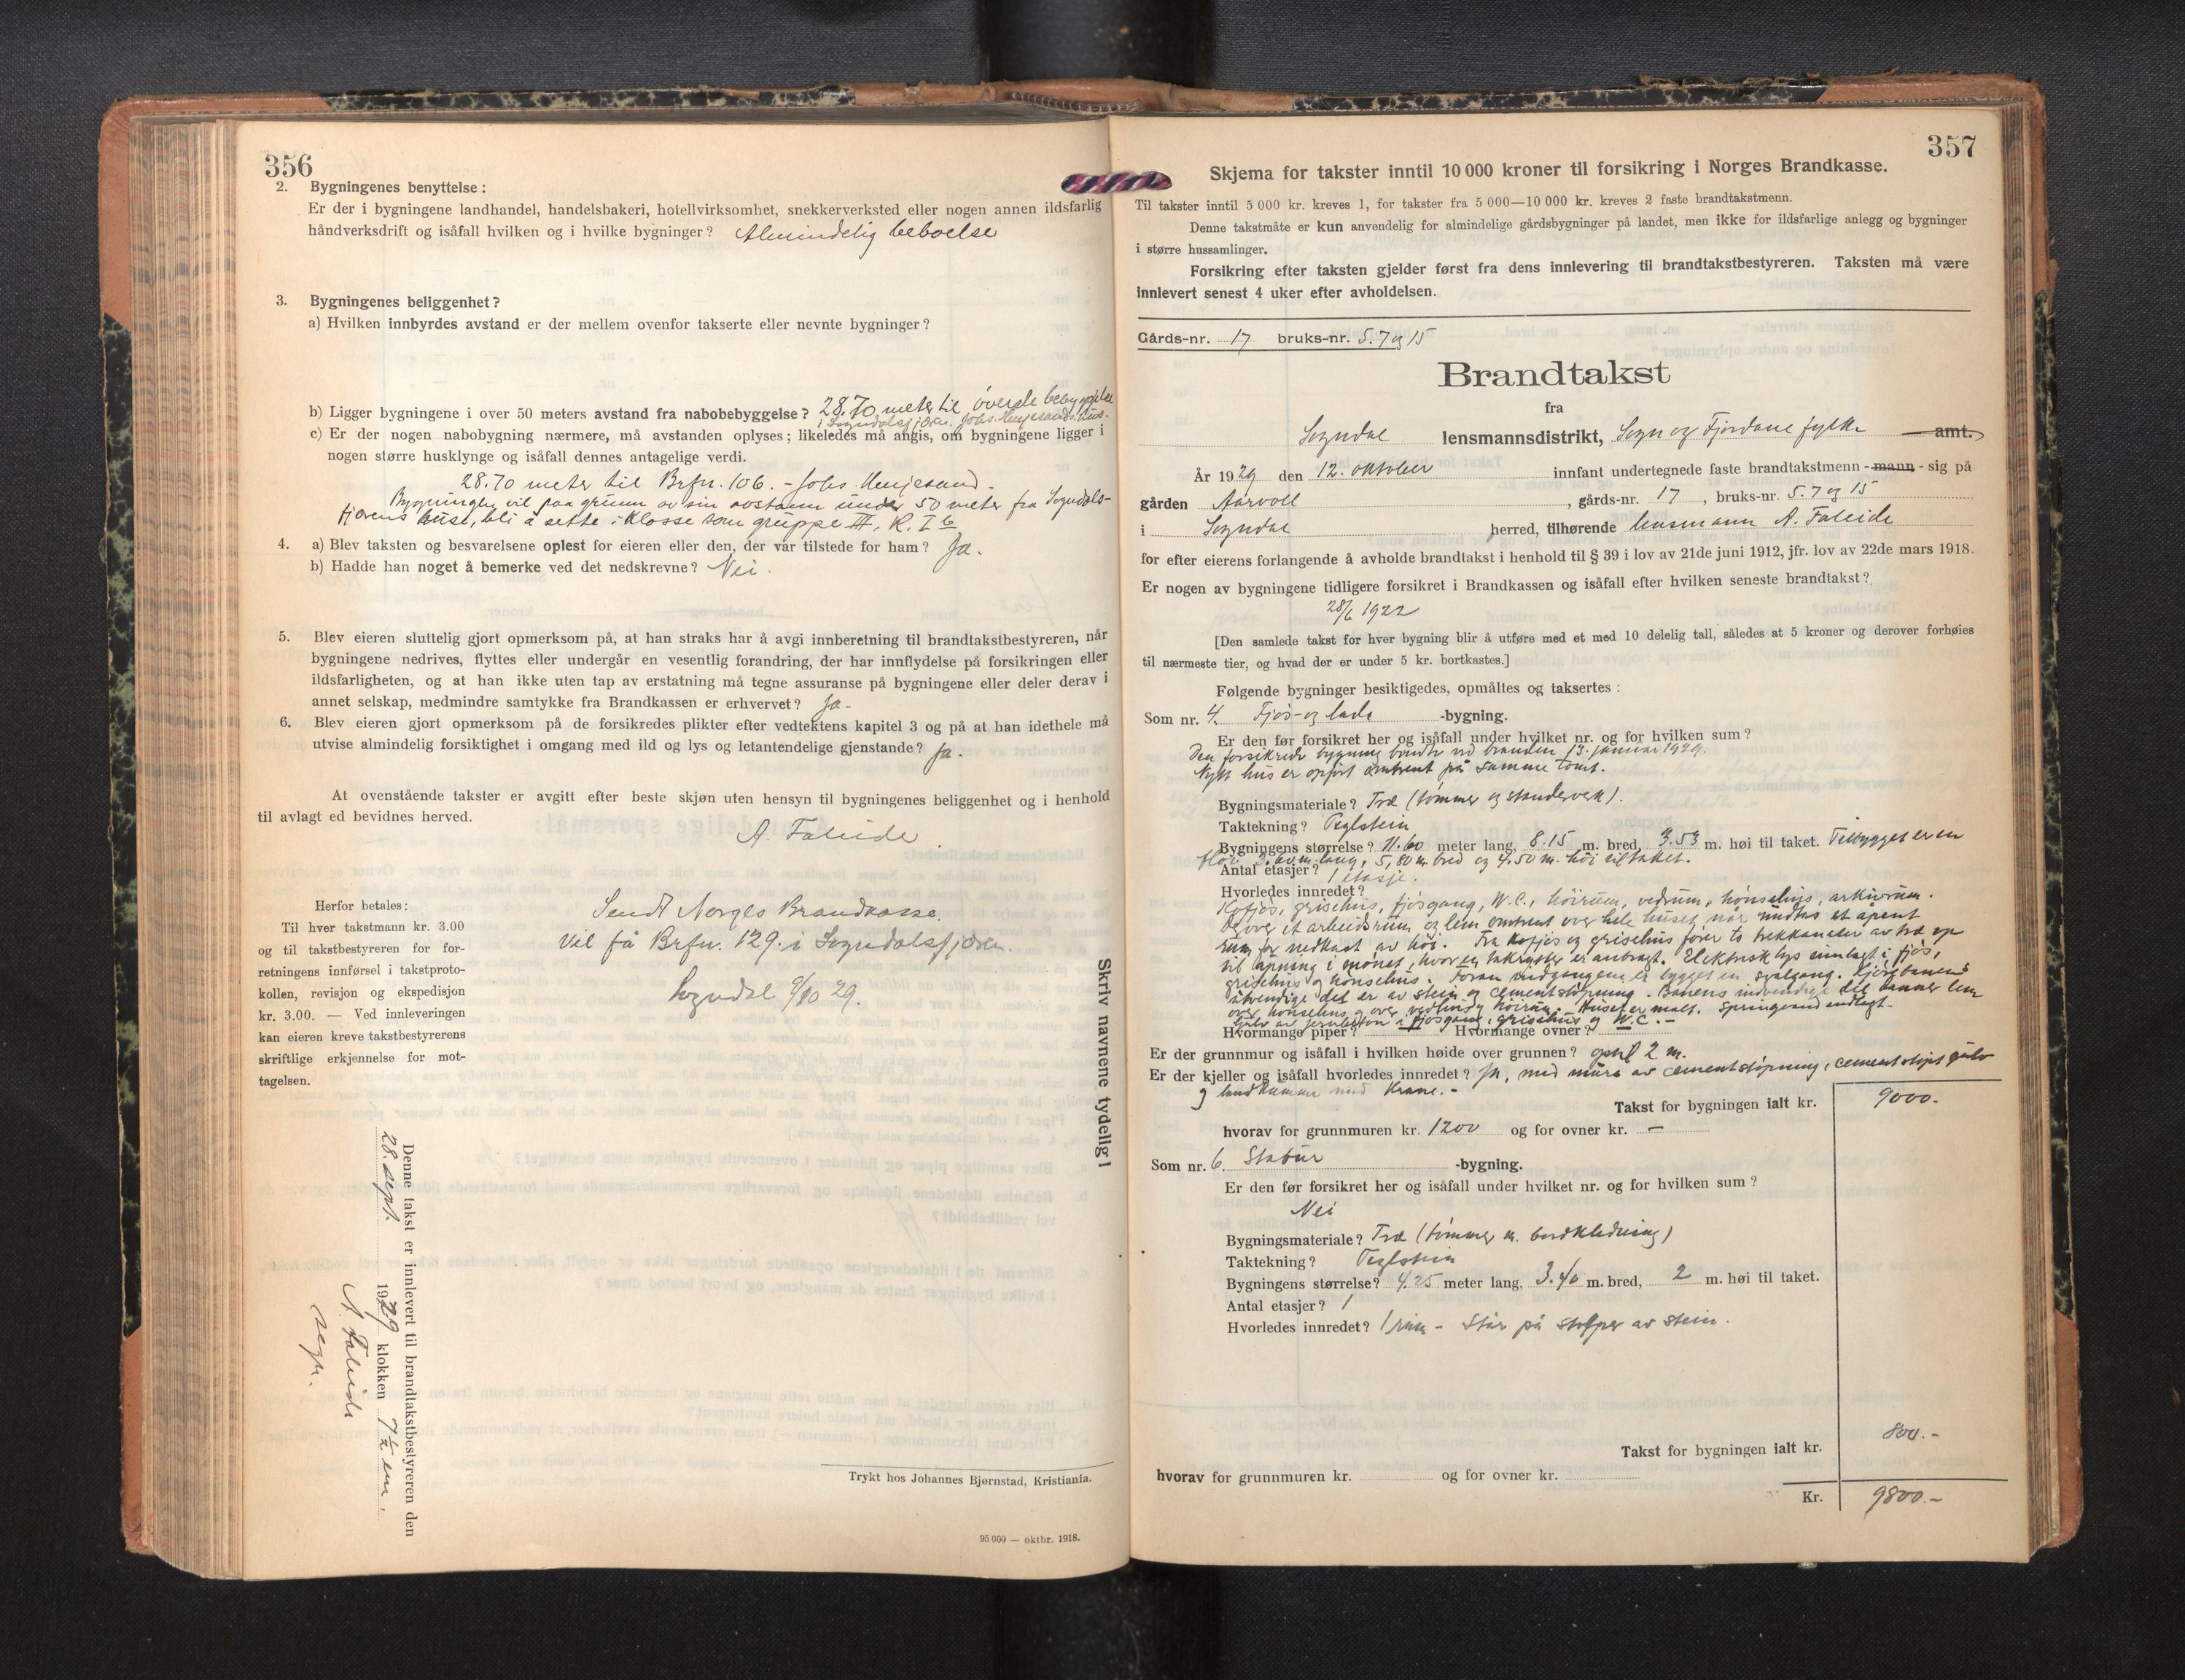 356
2. Bygningenes benyttelse:
Er der i bygningene landhandel, handelsbakeri, hotellvirksomhet, snekkerverksted eller nogen annen ildsfarlig
håndverksdrift og isåfall hvilken og i hvilke bygninger? Almindelig beboelse
3. Bygningenes beliggenhet?
a) Hvilken innbyrdes avstand er der mellem ovenfor takserte eller nevnte bygninger?
b) Ligger bygningene i over 50 meters avstand fra nabobebyggelse? 28.70 meter til øverste bebyggelse
i Sogndalsfjøren. Johs. Henjesands hus.
c) Er der nogen nabobygning nærmere, må avstanden oplyses; likeledes må angis, om bygningene ligger i
nogen større husklynge og isåfall dennes antagelige verdi.
28.70 meter til Brfnr. 106. - Johs. Henjesand.
Bygningen vil paa grunn av sin avstann under 50 meter fra Sogndals-
fjørens huse, bli å sette i klasse som gruppe II, K. I b
4. a) Blev taksten og besvarelsene oplest for eieren eller den, der var tilstede for ham? Ja.
b) Hadde han noget å bemerke ved det nedskrevne? Nei.
5. Blev eieren sluttelig gjort opmerksom på, at han straks har å avgi innberetning til brandtakstbestyreren, når
bygningene nedrives, flyttes eller undergår en vesentlig forandring, der har innflydelse på forsikringen eller
ildsfarligheten, og at han ikke uten tap av erstatning må tegne assuranse på bygningene eller deler derav i
annet selskap, medmindre samtykke fra Brandkassen er erhvervet? Ja -
6. Blev eieren gjort opmerksom på de forsikredes plikter efter vedtektens kapitel 3 og på at han idethele må
utvise almindelig forsiktighet i omgang med ild og lys og letantendelige gjenstande? Ja.
At ovenstående takster er avgitt efter beste skjøn uten hensyn til bygningenes beliggenhet og i henhold
til avlagt ed bevidnes herved.
A. Faleide
Herfor betales:
Til hver takstmann kr. 3.00
og til takstbestyreren for for-
retningens innførsel i takstproto-
kollen, revisjon og ekspedisjon
kr. 3.00. — Ved innleveringen
kan eieren kreve takstbestyrerens
skriftlige erkjennelse for mot-
tagelsen.
Sendt Norges Brandkasse.
Vil få Brfnr. 129. i Sogndalsfjøren.
Sogndal 9/10 29.
Skriv navnene tydelig!
Denne takst er innlevert til brandtakstbestyreren den
28. sept. 1929 klokken 7½ em.
A. Faleide
Trykt hos Johannes Bjørnstad, Kristiania.
95 000 — oktbr. 1918.
357
Skjema for takster inntil 10 000 kroner til forsikring i Norges Brandkasse.
Til takster inntil 5 000 kr. kreves 1, for takster fra 5 000—10 000 kr. kreves 2 faste brandtakstmenn.
Denne takstmåte er kun anvendelig for almindelige gårdsbygninger på landet, men ikke for ildsfarlige anlegg og bygninger
i større hussamlinger.
Forsikring efter taksten gjelder først fra dens innlevering til brandtakstbestyreren. Taksten må være
innlevert senest 4 uker efter avholdelsen.
Gårds-nr. 17 bruks-nr. 5. 7 og 15
Brandtakst
fra
Sogndal lensmannsdistrikt, Sogn og Fjordane fylke amt.
År 1929 den 12. oktober innfant undertegnede faste brandtakstmenn - mann - sig på
gården Aarvoll, gårds-nr. 17, bruks-nr. 5. 7 og 15
i Sogndal herred, tilhørende lensmann A. Faleide
for efter eierens forlangende å avholde brandtakst i henhold til § 39 i lov av 21de juni 1912, jfr. lov av 22de mars 1918.
Er nogen av bygningene tidligere forsikret i Brandkassen og isåfall efter hvilken seneste brandtakst?
28/6 1922
[Den samlede takst for hver bygning blir å utføre med et med 10 delelig tall, således at 5 kroner og derover forhøies
til nærmeste tier, og hvad der er under 5 kr. bortkastes.]
Følgende bygninger besiktigedes, opmåltes og taksertes:
Som nr. 4. Fjøs- og lade -bygning.
Er den før forsikret her og isåfall under hvilket nr. og for hvilken sum?
Den forsikrede bygning brendte ved branden 13. januar 1929.
Nytt hus er opført omtrent på samme tomt.
Bygningsmateriale? Træ (tømmer og standerverk).
Taktekning? Teglstein
Bygningens størrelse? 11.60 meter lang, 8.15 m. bred, 3.53 m. høi til taket. Tilbygget er en
3.60 m. lang, 5,80 m. bred og 4.50 m. høi til taket.
Antal etasjer? 1 etasje.
Hvorledes innredet?
Kofjøs, grisehus, fjøsgang, W.C., høirum, vedrum, hønsehus, arkivrum.
Ovover et arbeidsrum og lem omtrent over hele huset når undtas et åpent
rum for nedkast av høi. Fra kofjøs og grisehus fører to trekkanaler av træ op
til åpning i mønet, hvor en takrytter er anbragt. Elektrisk lys innlagt i fjøs,
grisehus og hønsehus. Foran indgangene er bygget en svalgang. Kjørebanens
utvendige del er av stein og cementstøpning. Banens indvendige del danner lem
over hønsehus og over vedhus og høirum. Huset er malt. Springvand indlagt.
Gulv av jernbeton i fjøsgang, grisehus og W.C. -
Hvormange piper? Hvormange ovner?
Er der grunnmur og isåfall i hvilken høide over grunnen? optil 2 m.
Er der kjeller og isåfall hvorledes innredet? Ja, med mure av cementstøpning, cementstøpt gulv
og landkummen med krane. -
Takst for bygningen ialt kr. 9000.-
hvorav for grunnmuren kr. 1200 og for ovner kr. —
Som nr. 6. Stabur -bygning.
Er den før forsikret her og isåfall under hvilket nr. og for hvilken sum?
Nei
Bygningsmateriale? Træ (tømmer m. bordkledning)
Taktekning? Teglstein
Bygningens størrelse? 4.25 meter lang, 3.40 m. bred, 2 m. høi til taket.
Antal etasjer? 1
Hvorledes innredet? 1 rum - Står på stolper av stein.
Takst for bygningen ialt kr. 800.-
hvorav for grunnmuren kr. og for ovner kr.
Kr. 9800.-